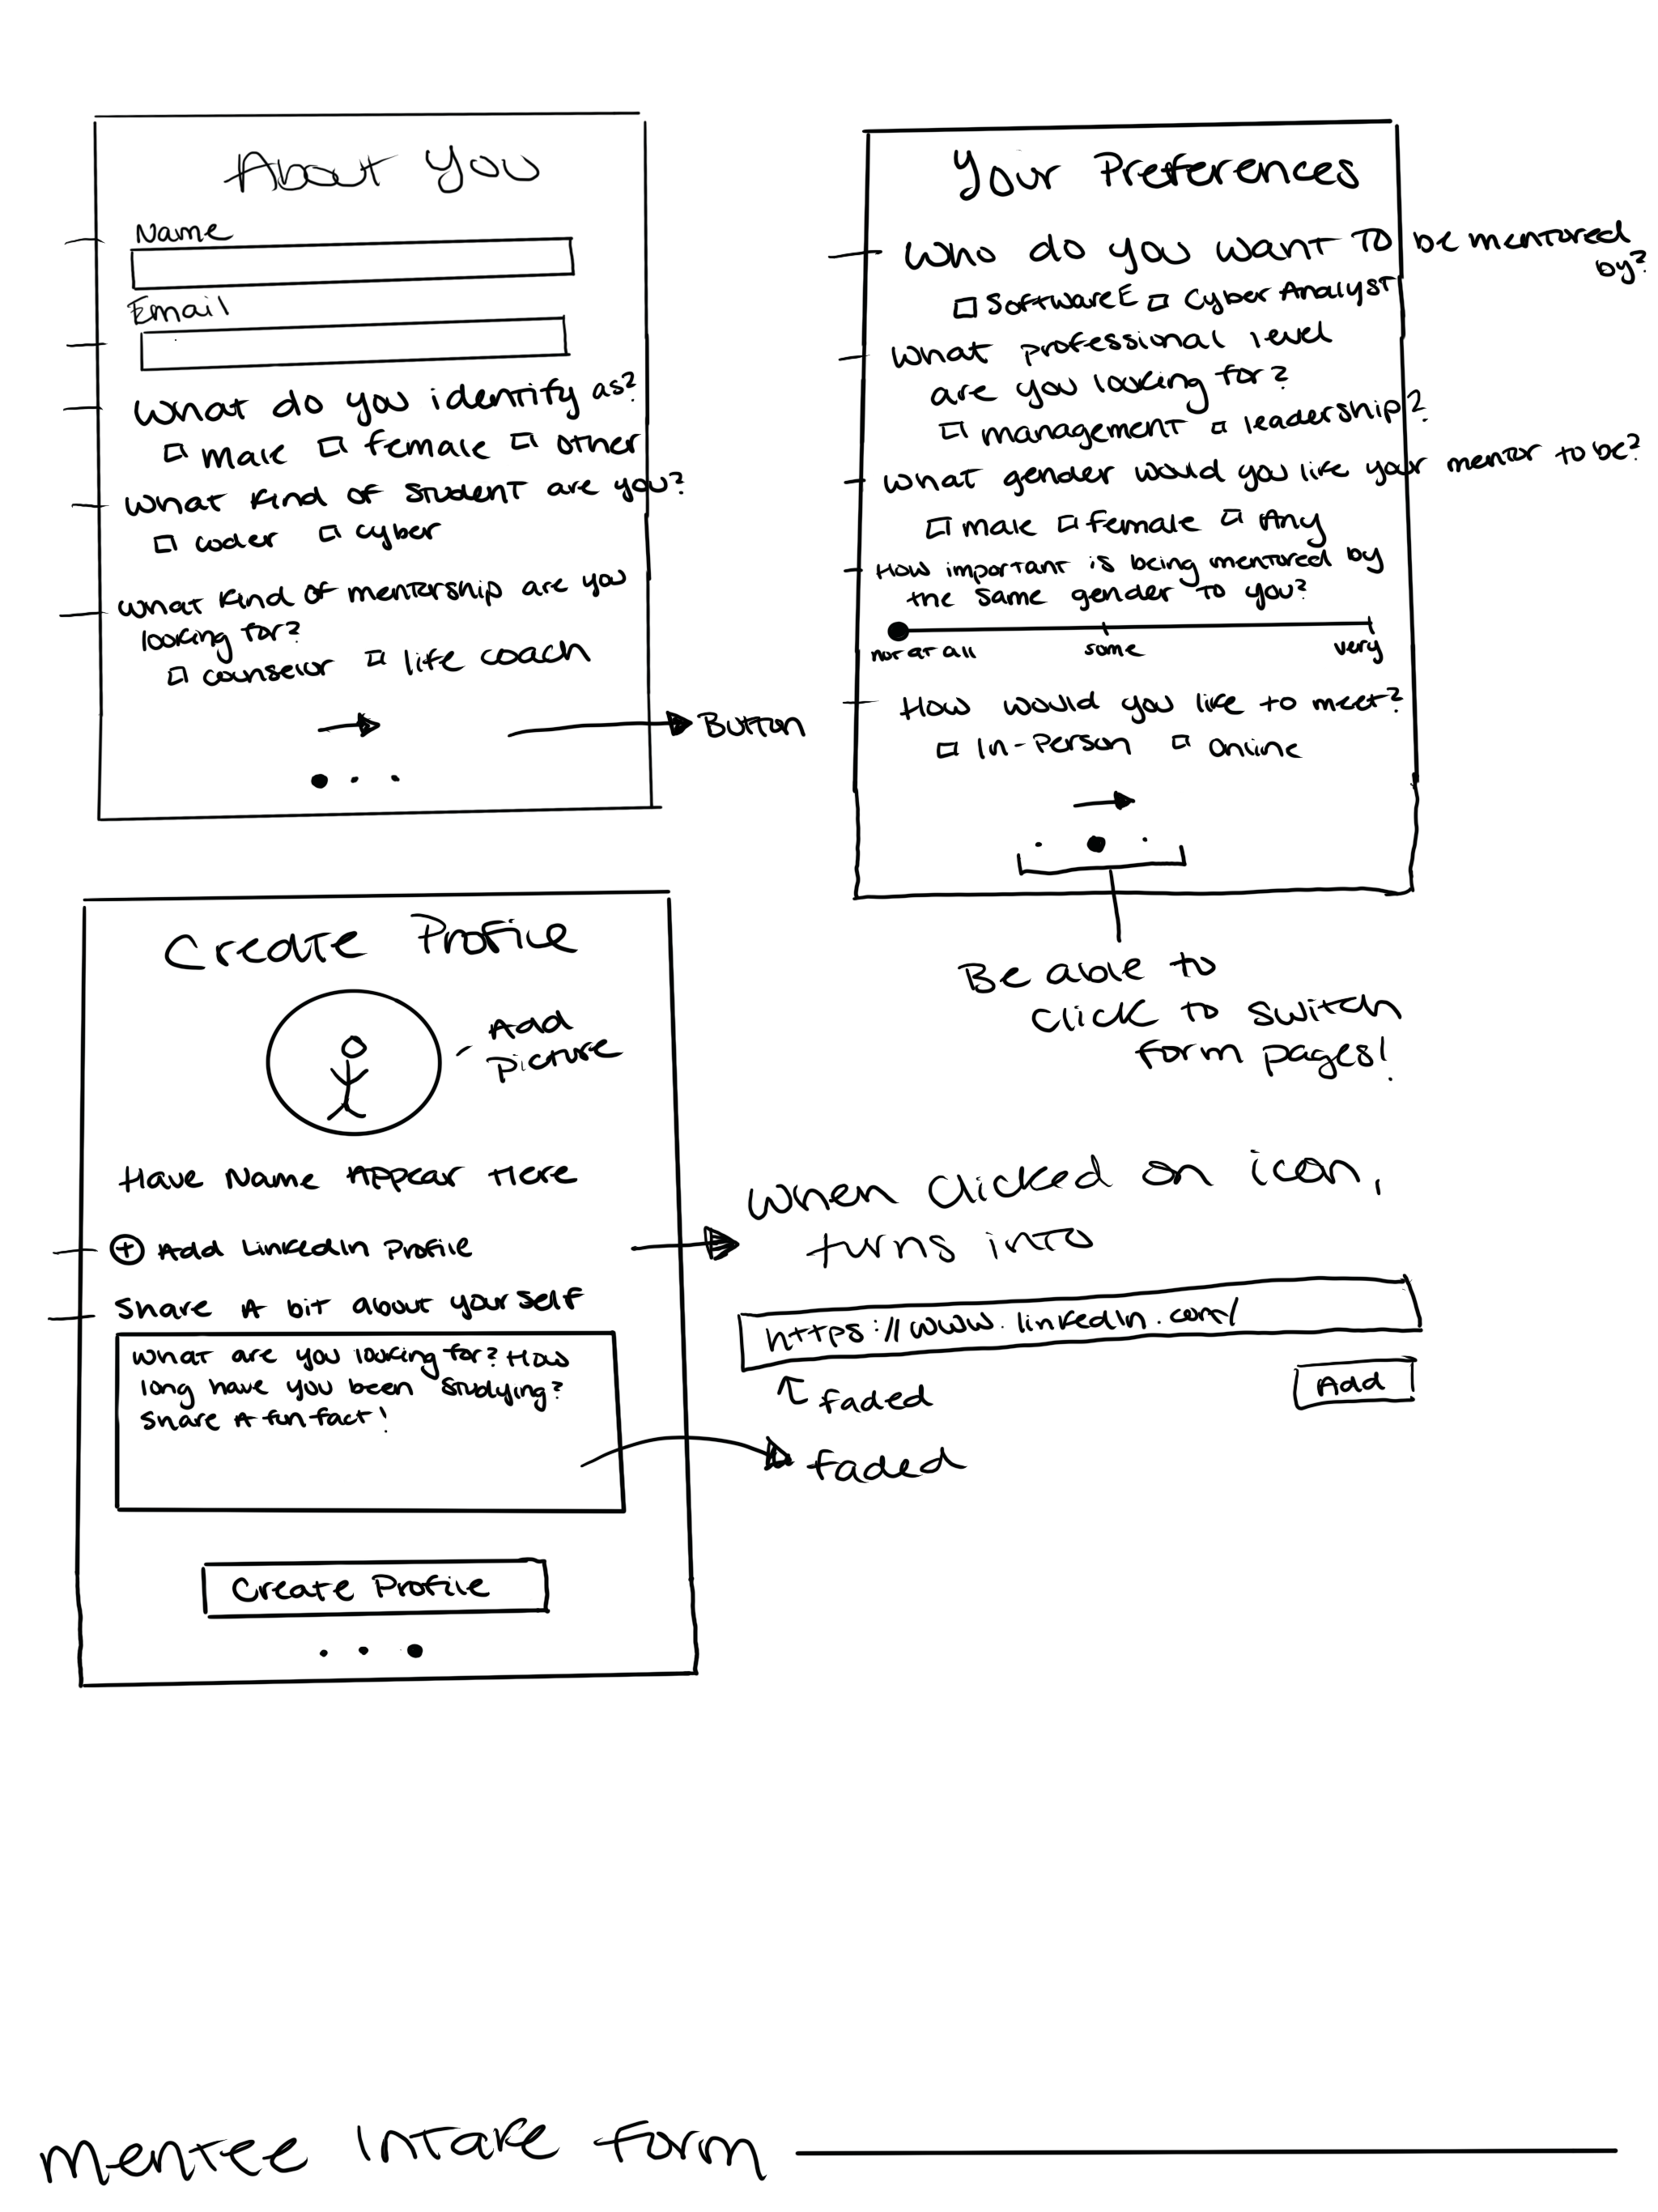 About You
Name
Email
What do you identify as?
male female other
What kind of student are you?
coder cyber
What kind of mentorship are you
looking for?
counselor life coach
Button
Your Preferences
Who do you want to be mentored
by?
Software E Cyber Analyst
What professional level
are you looking for?
management leadership?
What gender would you like your mentor to be?
male female Any
How important is being mentored by
the same gender to you?
not at all some very
How would you like to meet?
In-Person Online
Be able to
click to switch
form pages!
Create Profile
Add
picture
Have Name Appear Here
+ Add LinkedIn Profile
Share A bit about yourself
What are you looking for? How
long have you been studying?
Share A fun fact!
Create Profile
When clicked on icon,
turns into
https://www.linkedin.com/
faded
Add
faded
Mentee Intake Form